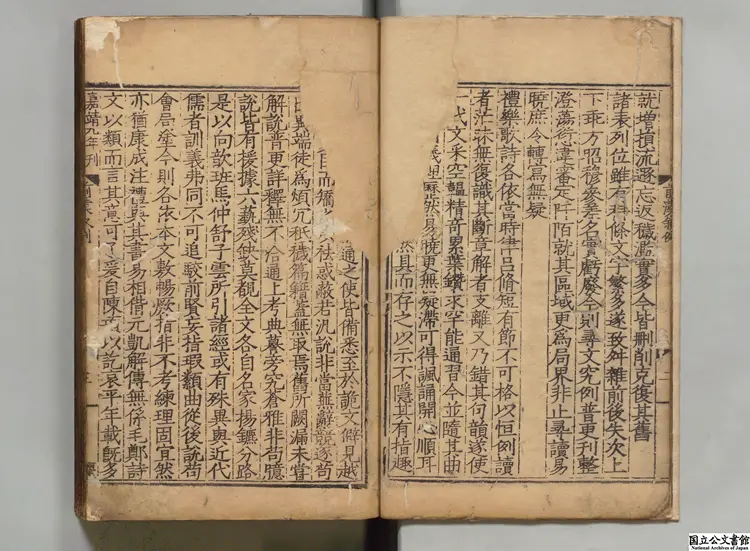 就増損流遯忘返穢濫實多今皆刪削克復其舊
諸表列位雖有科條文字繁多遂致舛雜前後失次上
下乖方昭穆參差名實虧廢今則尋文究例普更刊整
澄蕩愆違審定阡陌就其區域更爲局界非止尋讀易
曉庶令轉寫無疑
禮樂歌詩各依當時律呂脩短有節不可格以恒例讀
者茫昧無復識其斷章解者支離又乃錯其句韻遂使
代文采空韞精奇累葉鑽求罕能通習今並隨其曲
義理歷然易曉更無疑滯可得諷誦開心順耳
然具而存之以示不隱其有指趣
通之使皆備悉至於詭文僻見越
目而矯之以祛惑蔽若汎說非當蕪辭競逐苟
出異端徒爲煩冗秖穢篇籍蓋無取焉舊所闕漏未嘗
解說普更詳釋無不洽通上考典謨旁究蒼雅非苟臆
說皆有援據六藝殘缺莫覩全文各自名家揚鑣分路
是以向歆班馬仲舒子雲所引諸經或有殊異與近代
儒者訓義弗同不可追駮前賢妄指瑕纇曲從後說苟
會扃塗今則各依本文敷暢厥指非不考練理固宜然
亦猶康成注禮與其書易相偝元凱解傳無係毛鄭詩
文以類而言其意可了爰自陳項以訖哀平年載既多
嘉靖九年刊
国立公文書館
National Archives of Japan